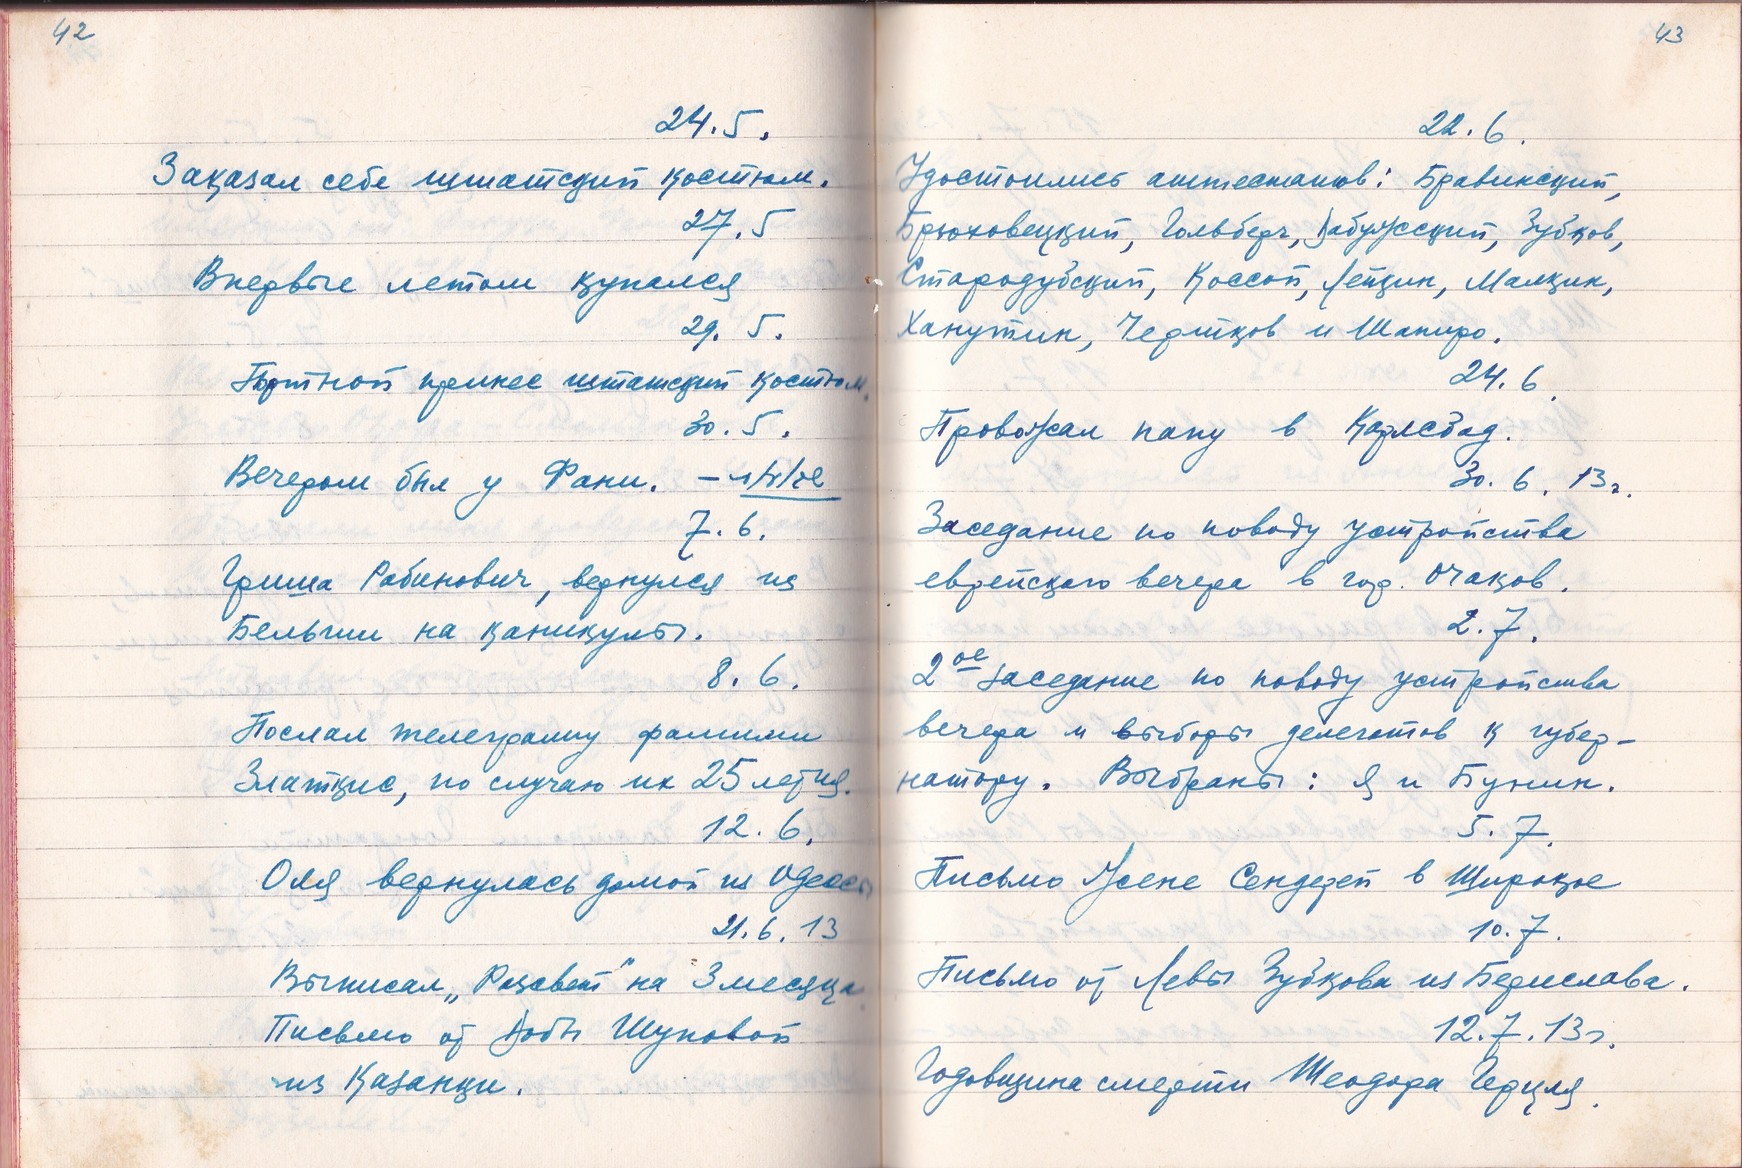 42
24.5.
Заказал себе штатский костюм.
27.5
Впервые летом купался
29.5.
Портной принес штатский костюм.
30.5.
Вечером был у Фани. —
7.6.
Гриша Рабинович, вернулся из
Бельгии на каникулы.
8.6.
Послал телеграмму фамилии
Златкис, по случаю их 25 летия.
12.6.
Оля вернулась домой из Одессы
21.6.13
Выписал „Разсвет" на 3 месяца
Письмо от Добы Шуповой
из Казанки.
43
22.6.
Удостоились аттестатов: Бравинский,
Брюховецкий, Гольберг, Добужский, Зубков,
Стародубский, Коссой, Лейкин, Малкин,
Ханутин, Чертков и Шапиро.
24.6
Провожал папу в Карлсбад.
30.6.13г.
Заседание по поводу устройства
еврейского вечера в гор. Очаков.
2.7.
2ое заседание по поводу устройства
вечера и выборы делегатов к губер-
натору. Выбраны: я и Бунин.
5.7.
Письмо Жене Сендерей в Широкое
10.7.
Письмо от Левы Зубкова из Берислава.
12.7.13г.
Годовщина смерти Теодора Герцля.